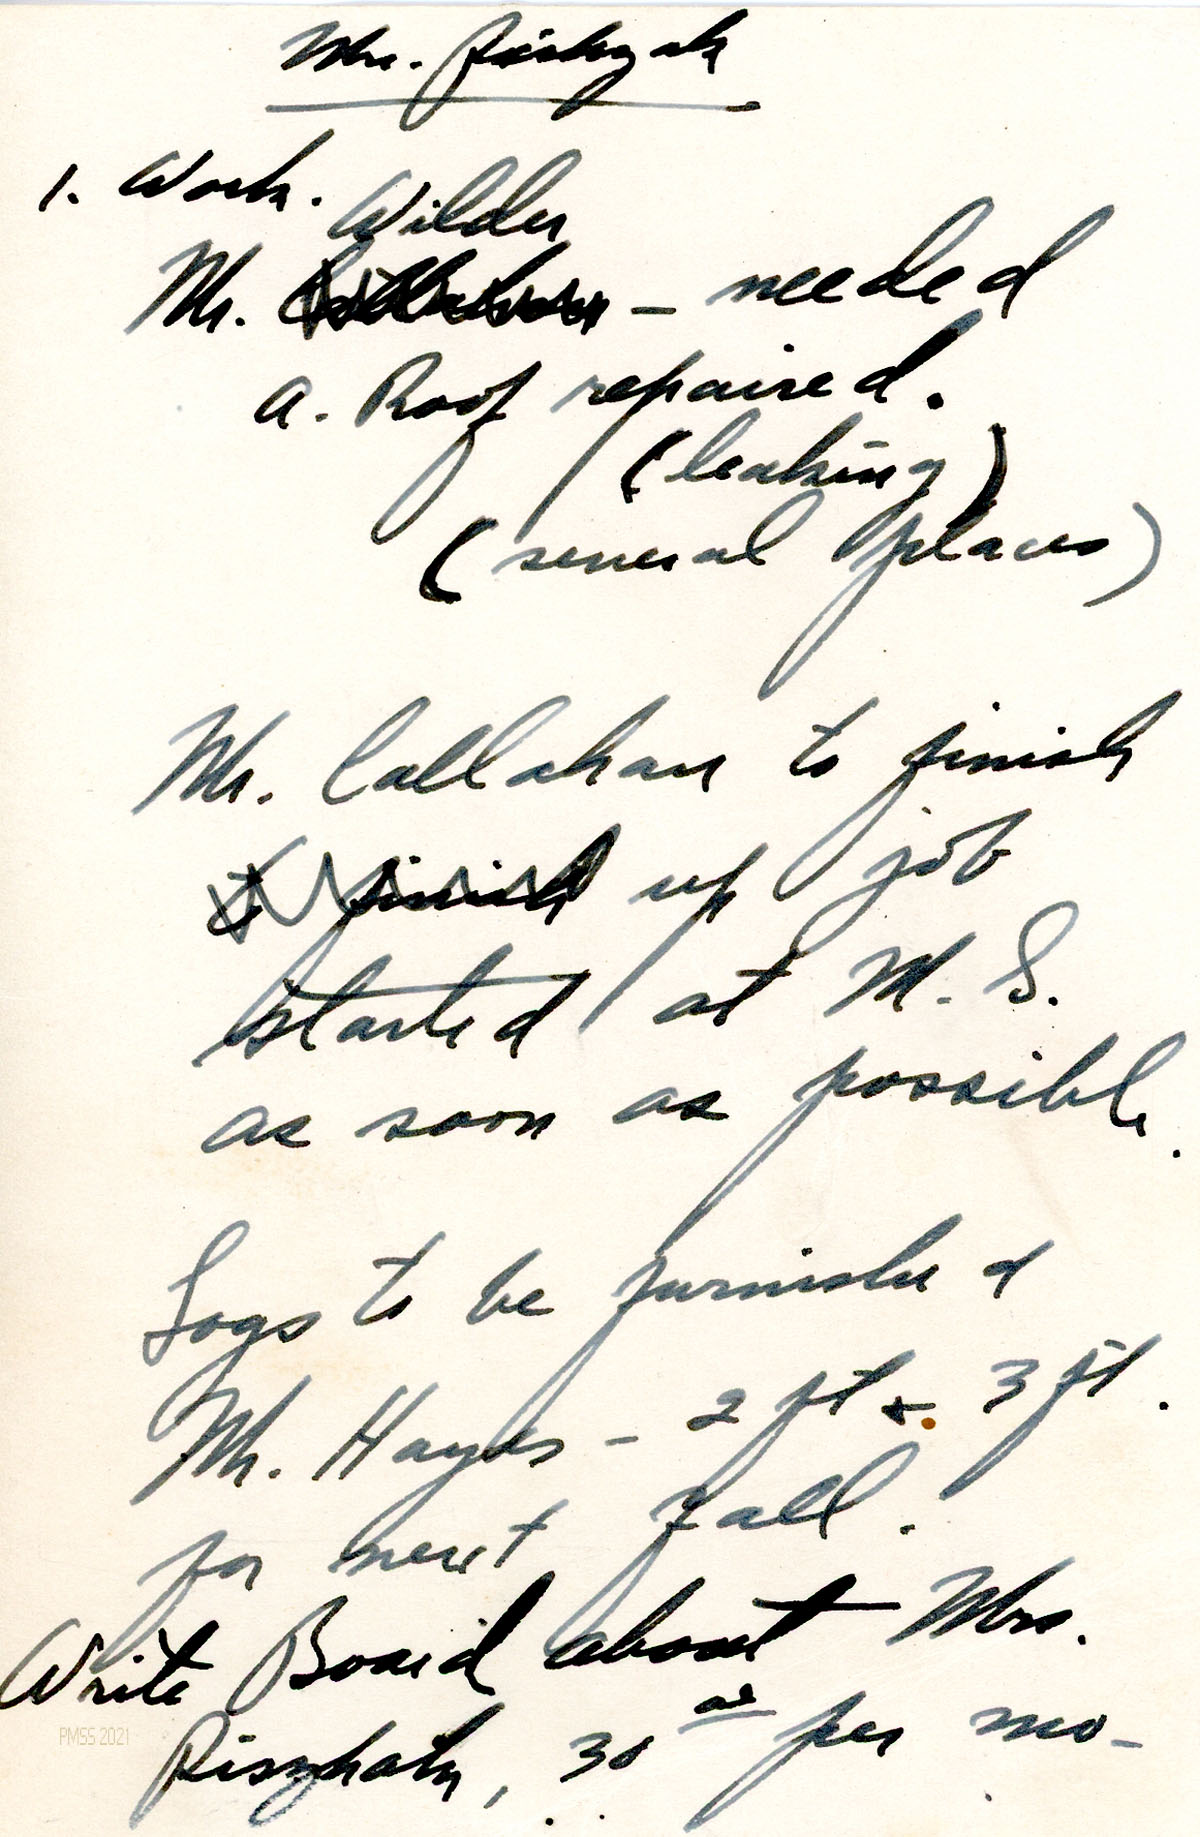 Mr.
1. Work.
Wilder
Mr. Callahan – needed
a. Roof repaired.
(leaking)
(several places)
Mr. Callahan to finish
finish up job
started at M. S.
as soon as possible.
Logs to be furnished
Mr. Hayes – 2 ft & 3 ft.
for next fall.
Write Board about Mrs.
30 00 per mo –
PMSS 2021